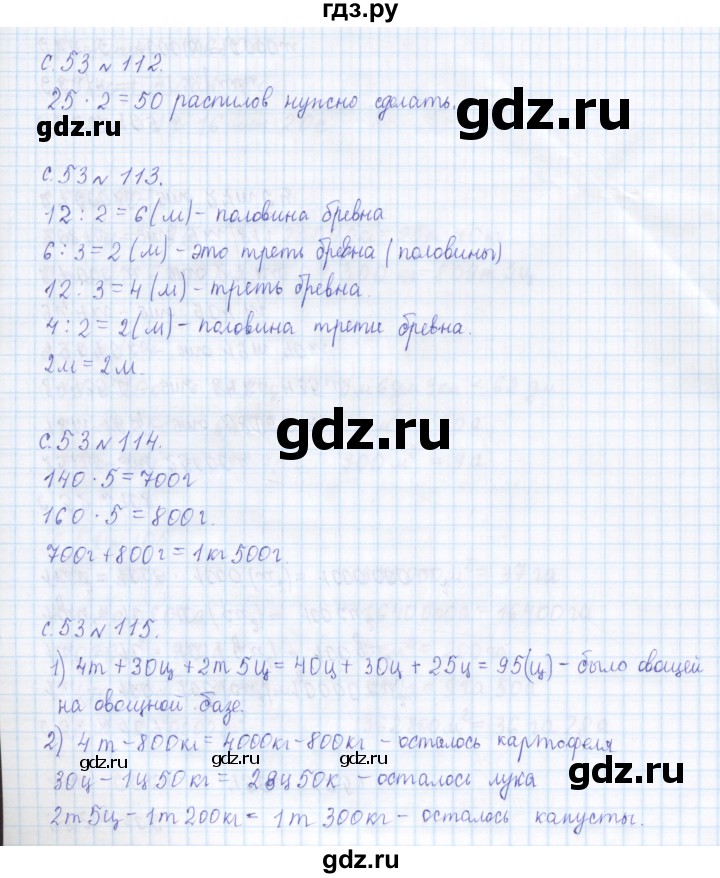 гдз.ру
с.53 № 112.
25 · 2 = 50 распилов нужно сделать.
gdz.ru
gdz.ru
с.53 № 113.
12 : 2 = 6 (м) - половина бревна
6 : 3 = 2 (м) - это треть бревна (половины)
12 : 3 = 4 (м) - треть бревна.
4 : 2 = 2 (м) - половина трети бревна.
2м = 2м.
gdz.ru
с.53 № 114.
140 · 5 = 700г
160 · 5 = 800г.
700г + 800г = 1кг 500г.
с.53 № 115.
1) 4т + 30ц + 2т 5ц = 40ц + 30ц + 25ц = 95(ц) - было овощей
на овощной базе.
2) 4т - 800кг = 4000кг - 800кг - осталось картофеля
gdz.ru gdz.ru gdz.ru
30ц - 1ц 50кг = 28ц 50к - осталось лука
gdz.ru
2т 5ц - 1т 200кг = 1т 300кг - осталось капусты.
gdz.ru